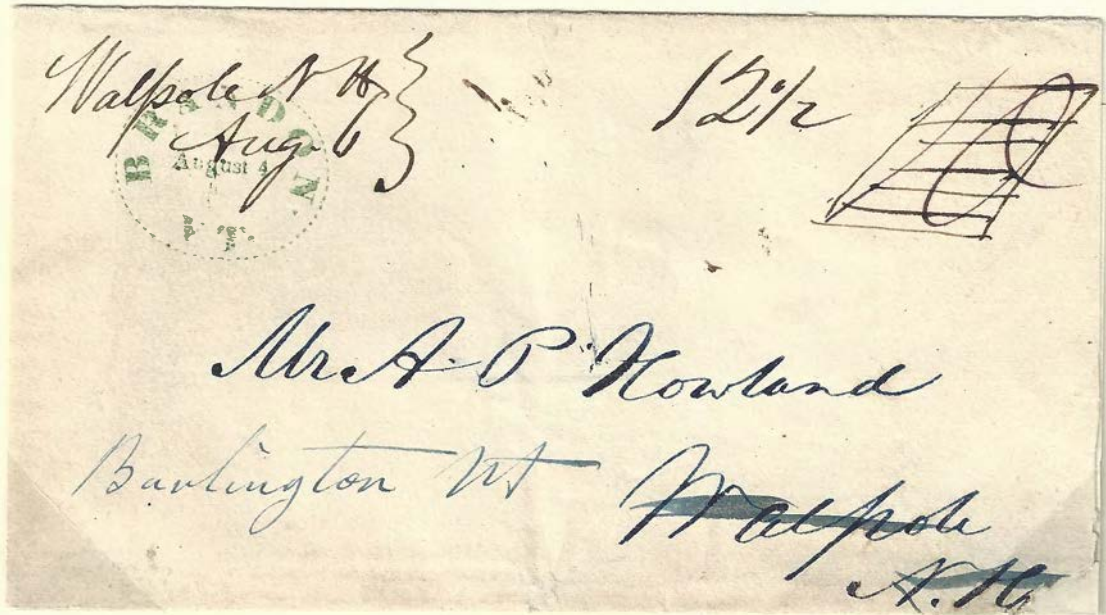 Walpole N H
Aug 6
12 1/2
10
BRANDON
August 4
VT.
Mr A P Howland
Burlington Vt
Walpole
N. H